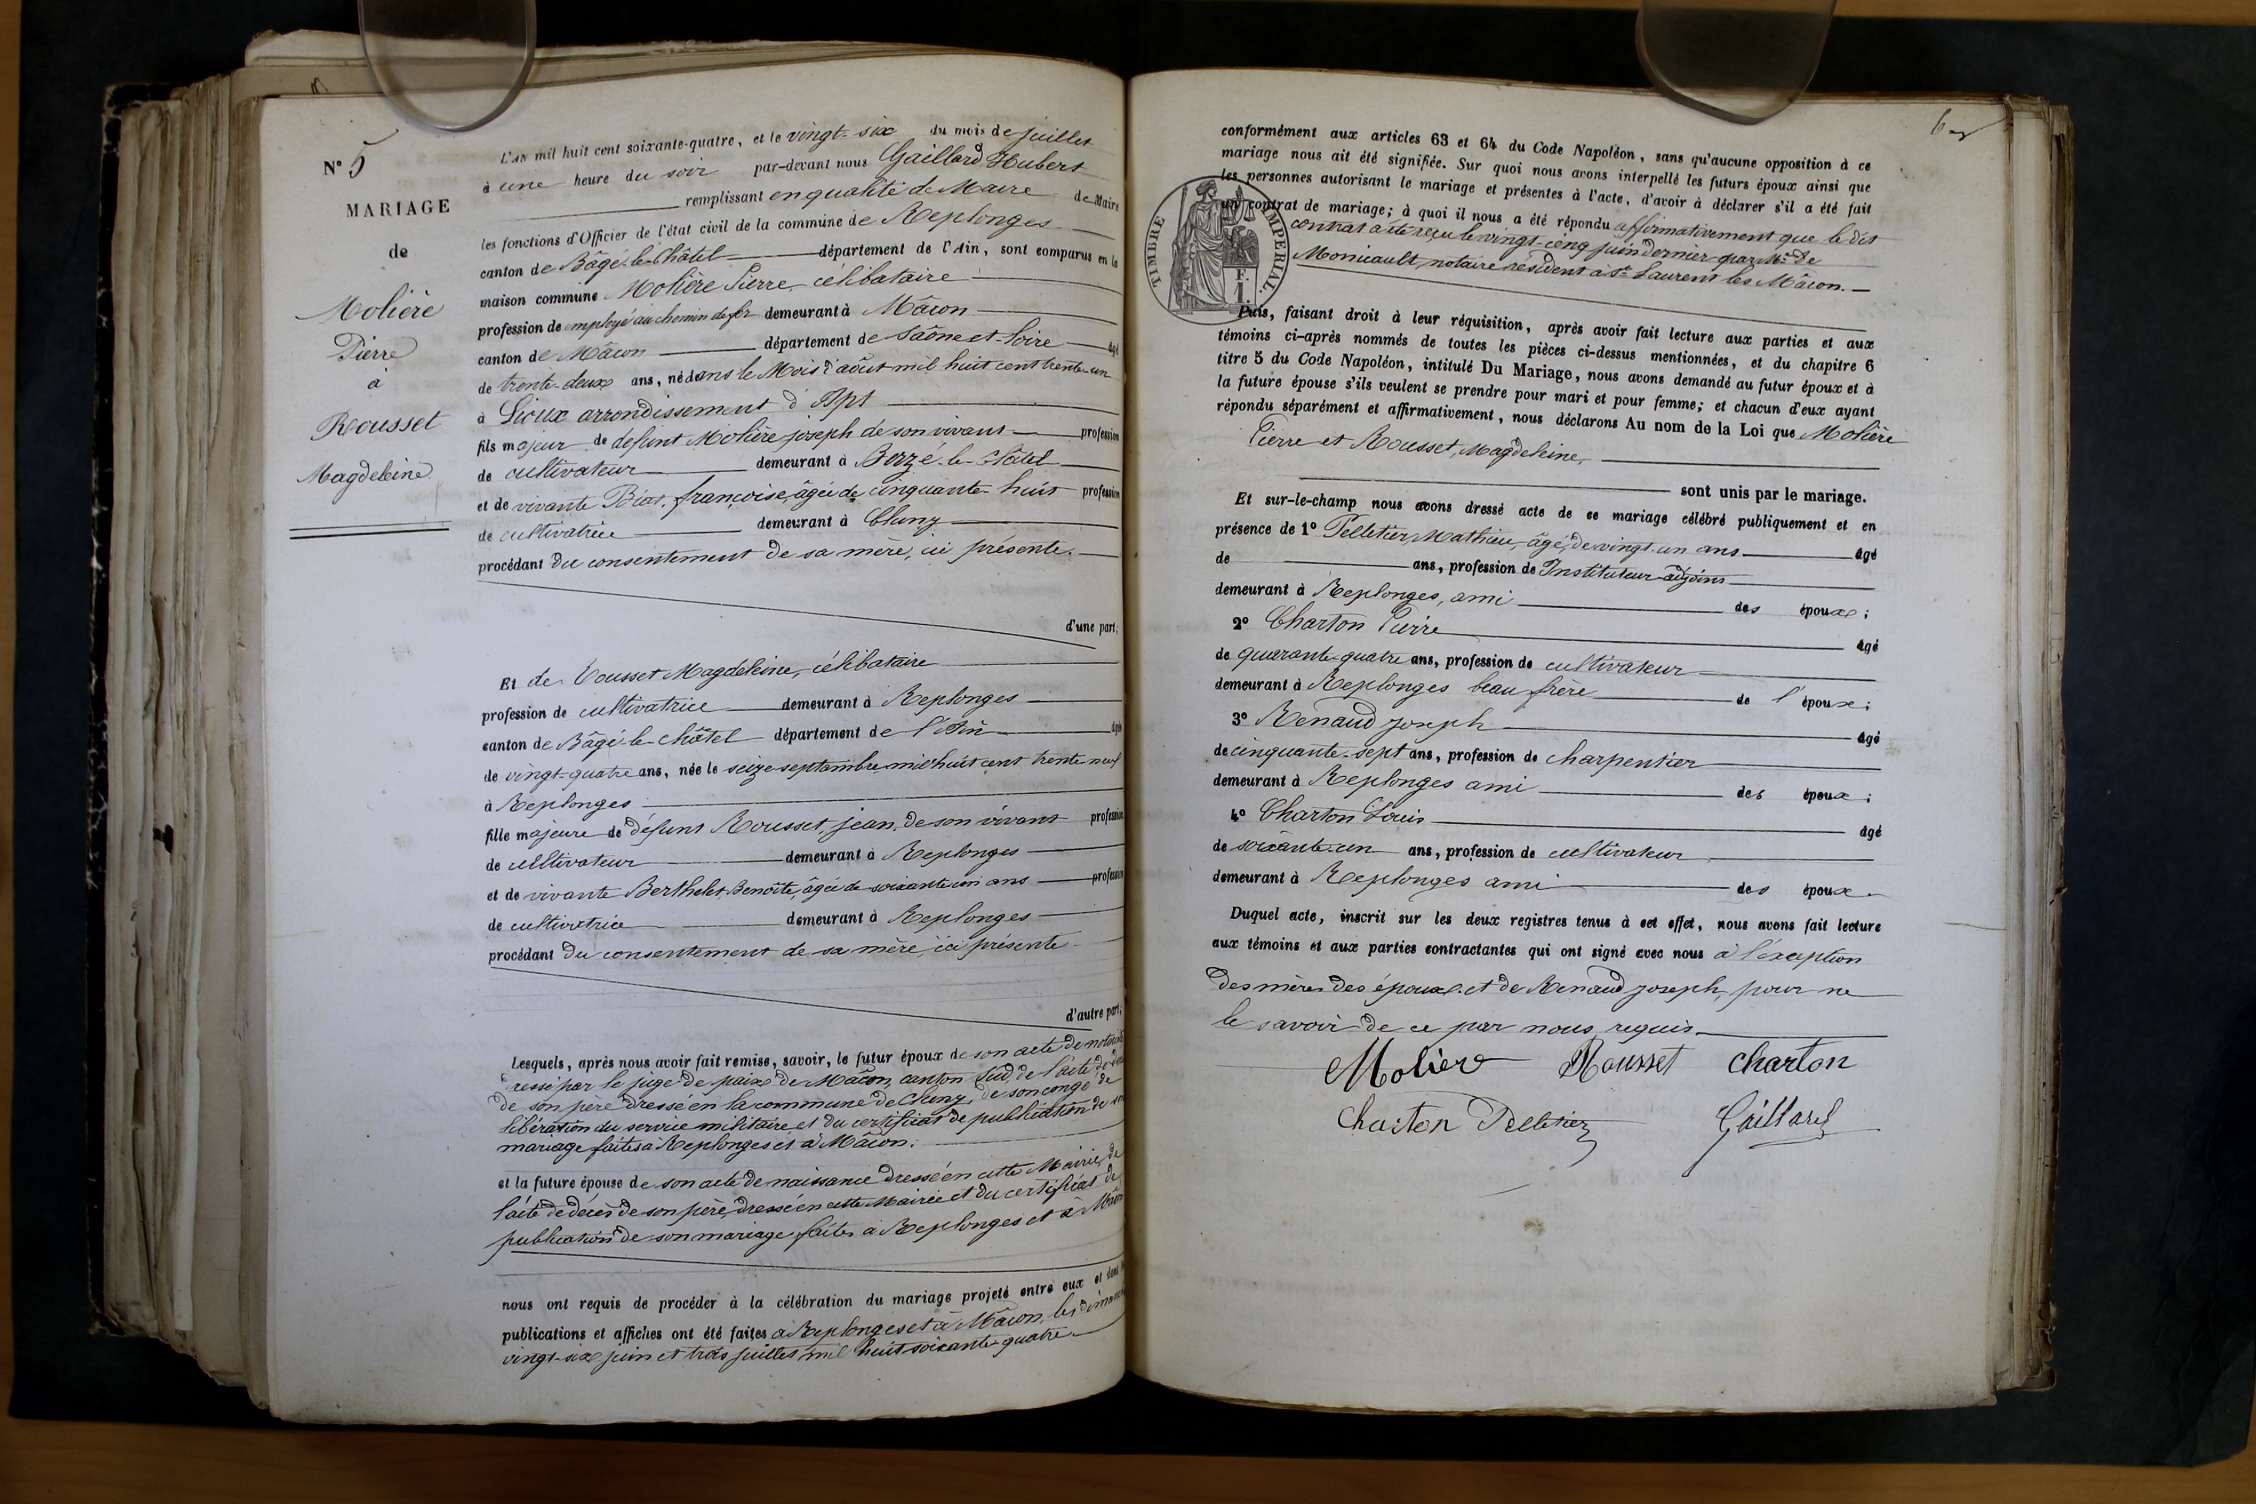 N° 5
MARIAGE
de
Molière
Pierre
à
Rousset
Magdeleine
L'an mil huit cent soixante-quatre, et le vingt-six du mois de juillet
à une heure du soir par-devant nous Gaillard Hubert
remplissant en qualité de Maire de Maire
les fonctions d'Officier de l'état civil de la commune de Replonges
canton de Bâgé-le-Châtel département de l'Ain, sont comparus en la
maison commune Molière Pierre, célibataire
profession de employé au chemin de fer demeurant à Mâcon
canton de Mâcon département de Saône et Loire âgé
de trente-deux ans, né dans le Mois d'août mil huit cent trente-un
à Lioux arrondissement d'Apt
fils majeur de défunt Molière joseph de son vivant profession
de cultivateur demeurant à Berzé-le-Châtel
et de vivante Françoise, âgée de cinquante-huit profession
de cultivatrice demeurant à Cluny
procédant du consentement de sa mère, ici présente.
d'une part;
Et de Rousset Magdeleine, célibataire
profession de cultivatrice demeurant à Replonges
canton de Bâgé-le-Châtel département de l'Ain âgée
de vingt-quatre ans, née le seize septembre mil huit cent trente neuf
à Replonges
fille majeure de défunt Rousset, jean, de son vivant profession
de cultivateur demeurant à Replonges
et de vivante Berthelet, Benoîte, âgée de soixante un ans profession
de cultivatrice demeurant à Replonges
procédant du consentement de sa mère, ici présente
d'autre part,
Lesquels, après nous avoir fait remise, savoir, le futur époux de son acte de notoriété
dressé par le juge de paix de Mâcon, canton Sud, de l'acte de
de son père dressé en la commune de Cluny, de son congé de
libération du service militaire et du certificat de publication de son
mariage faites à Replonges et à Mâcon.
et la future épouse de son acte de naissance dressé en cette Mairie, de
l'acte de décès de son père, dressé en cette Mairie et du certificat de
publication de son mariage faites à Replonges et à Mâcon
nous ont requis de procéder à la célébration du mariage projeté entre eux et dont les
publications et affiches ont été faites à Replonges et à Mâcon, les dimanches
vingt-six juin et trois juillet mil huit soixante-quatre
conformément aux articles 63 et 64 du Code Napoléon, sans qu'aucune opposition à ce
mariage nous ait été signifiée. Sur quoi nous avons interpellé les futurs époux ainsi que
les personnes autorisant le mariage et présentes à l'acte, d'avoir à déclarer s'il a été fait
un contrat de mariage; à quoi il nous a été répondu affirmativement que le dit
contrat a été reçu le vingt-cinq juin dernier par Me de
Monicault, notaire résident à St Laurent les Mâcon.
TIMBRE IMPERIAL.
F.
1.
Puis, faisant droit à leur réquisition, après avoir fait lecture aux parties et aux
témoins ci-après nommés de toutes les pièces ci-dessus mentionnées, et du chapitre 6
titre 5 du Code Napoléon, intitulé Du Mariage, nous avons demandé au futur époux et à
la future épouse s'ils veulent se prendre pour mari et pour femme; et chacun d'eux ayant
répondu séparément et affirmativement, nous déclarons Au nom de la Loi que Molière
Pierre et Rousset, Magdeleine,
sont unis par le mariage.
Et sur-le-champ nous avons dressé acte de ce mariage célébré publiquement et en
présence de 1° Pelletier, Mathieu, âgé, de vingt-un ans âgé
de ans, profession de Instituteur-adjoint
demeurant à Replonges, ami des époux;
2° Charton Pierre âgé
de quarante-quatre ans, profession de cultivateur
demeurant à Replonges beau frère de l'époux;
3° Renaud joseph âgé
de cinquante-sept ans, profession de charpentier
demeurant à Replonges ami des époux;
4° Charton Louis âgé
de soixante-un ans, profession de cultivateur
demeurant à Replonges ami des époux.
Duquel acte, inscrit sur les deux registres tenus à cet effet, nous avons fait lecture
aux témoins et aux parties contractantes qui ont signé avec nous à l'exception
des mères des époux et de Renaud joseph, pour ne
le savoir de ce par nous requis.
Molière Rousset Charton
Charton Pelletier Gaillard